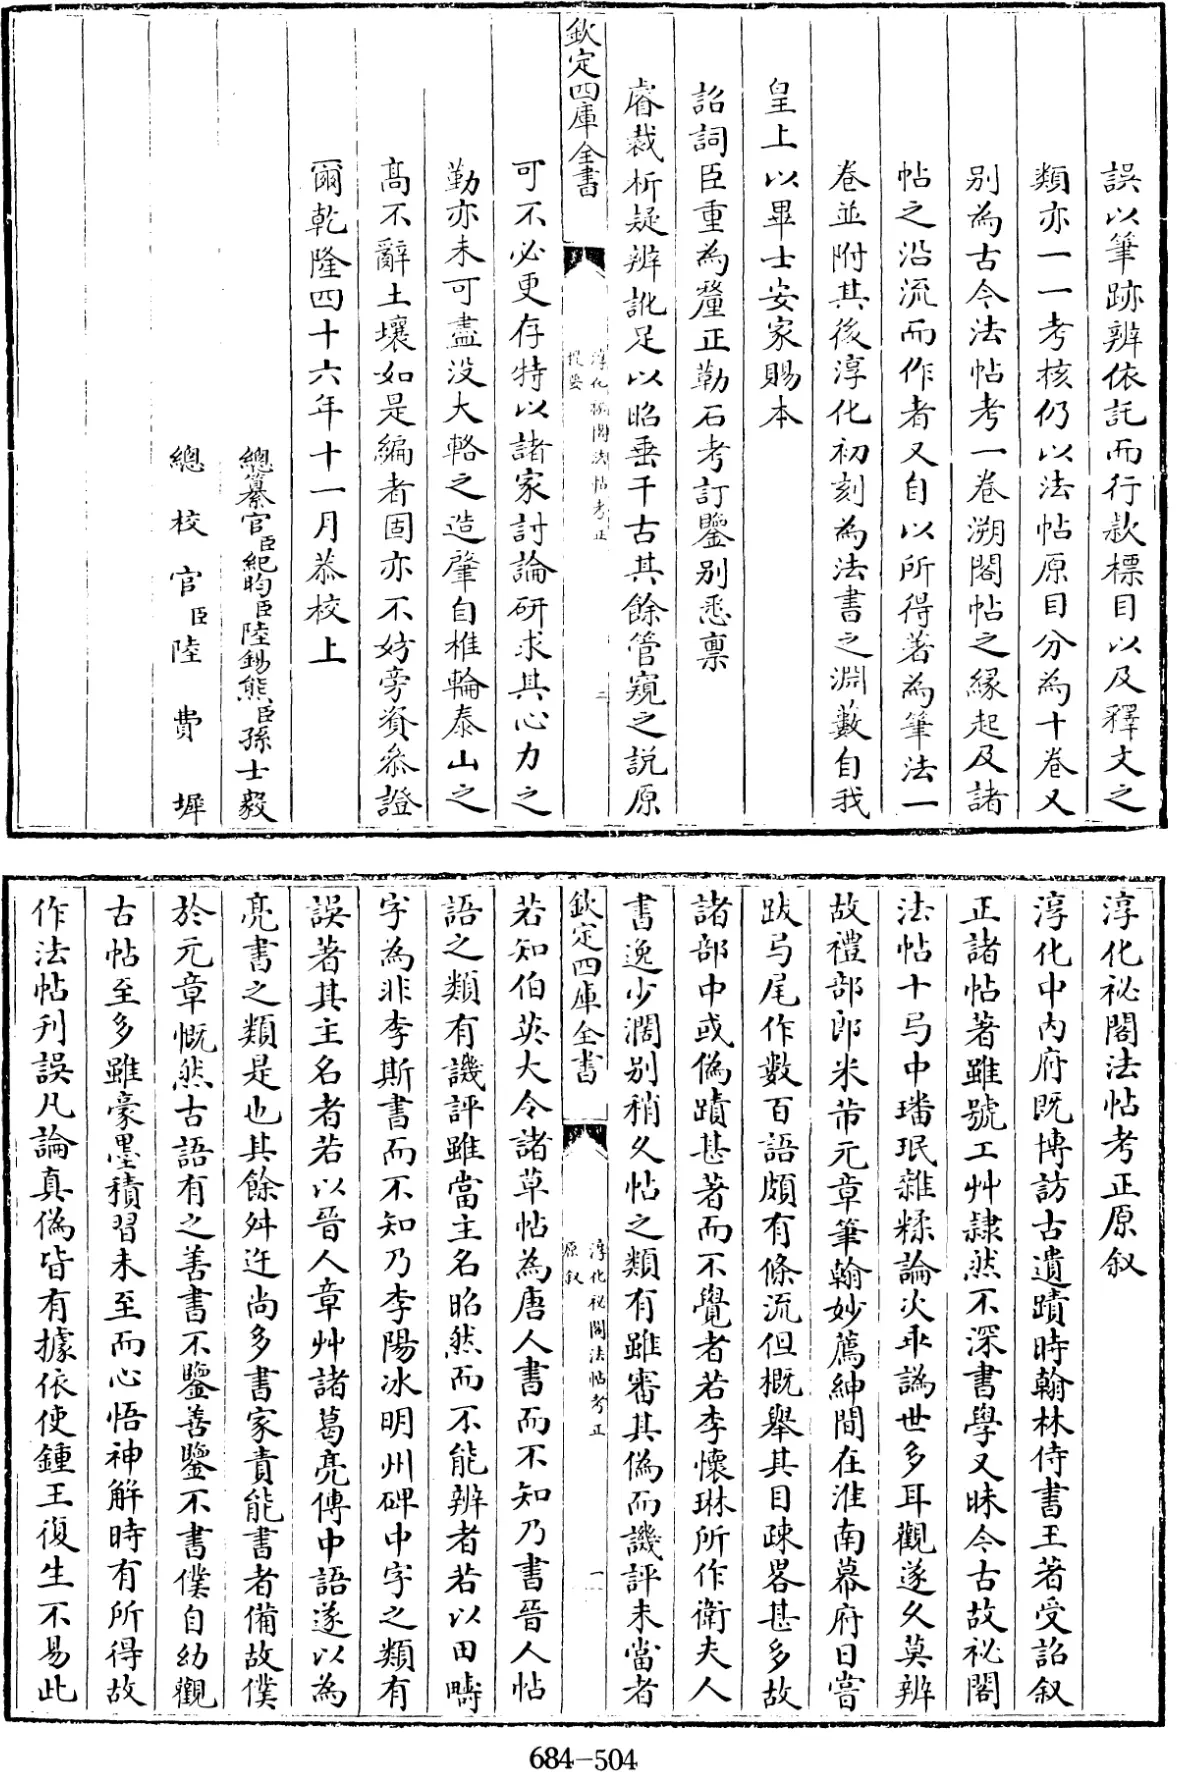 誤以筆跡辨依託而行款標目以及釋文之
類亦一一考核仍以法帖原目分為十卷又
别為古今法帖考一卷溯閣帖之緣起及諸
帖之沿流而作者又自以所得著為筆法一
卷並附其後淳化初刻為法書之淵藪自我
皇上以畢士安家賜本
詔詞臣重為釐正勒石考訂鑒别悉禀
睿裁析疑辨訛足以昭垂千古其餘管窺之説原
欽定四庫全書
淳化祕閣法帖考正
提要
二
可不必更存特以諸家討論研求其心力之
勤亦未可盡没大輅之造肇自椎輪泰山之
髙不辭土壤如是編者固亦不妨旁資叅證
爾乾隆四十六年十一月恭校上
總纂官臣紀昀臣陸錫熊臣孫士毅
總校官臣陸費墀
淳化祕閣法帖考正原叙
淳化中内府既博訪古遺蹟時翰林侍書王著受詔叙
正諸帖著雖號工艸隸然不深書學又昧今古故祕閣
法帖十弓中璠珉雜糅論次乖譌世多耳觀遂久莫辨
故禮部郎米芾元章筆翰妙薦紳間在淮南幕府日嘗
跋弓尾作數百語頗有條流但概舉其目疎畧甚多故
諸部中或偽蹟甚著而不覺者若李懷琳所作衛夫人
書逸少濶别稍久帖之類有雖審其偽而譏評未當者
欽定四庫全書
淳化祕閣法帖考正
原叙
一
若知伯英大令諸草帖為唐人書而不知乃書晉人帖
語之類有譏評雖當主名昭然而不能辨者若以田疇
字為非李斯書而不知乃李陽冰明州碑中字之類有
誤著其主名者若以晉人章艸諸葛亮傳中語遂以為
亮書之類是也其餘舛迕尚多書家責能書者備故僕
於元章慨然古語有之善書不鑒善鑒不書僕自幼觀
古帖至多雖豪墨積習未至而心悟神解時有所得故
作法帖刋誤凡論真偽皆有據依使鍾王復生不易此
684-504